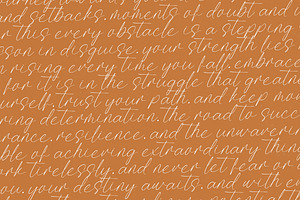 and setbacks. moments of doubt and
r this every obstacle is a stepping
son in disguise. your strength lies
n rising every time you fall. embrace
for it is in the struggle that great
urself. trust your path. and keep mo
ring determination. the road to succ
rance. resilience. and the unwaveri
ble of achieving extraordinary thing
rk tirelessly. and never let fear or
you. your destiny awaits. and with e